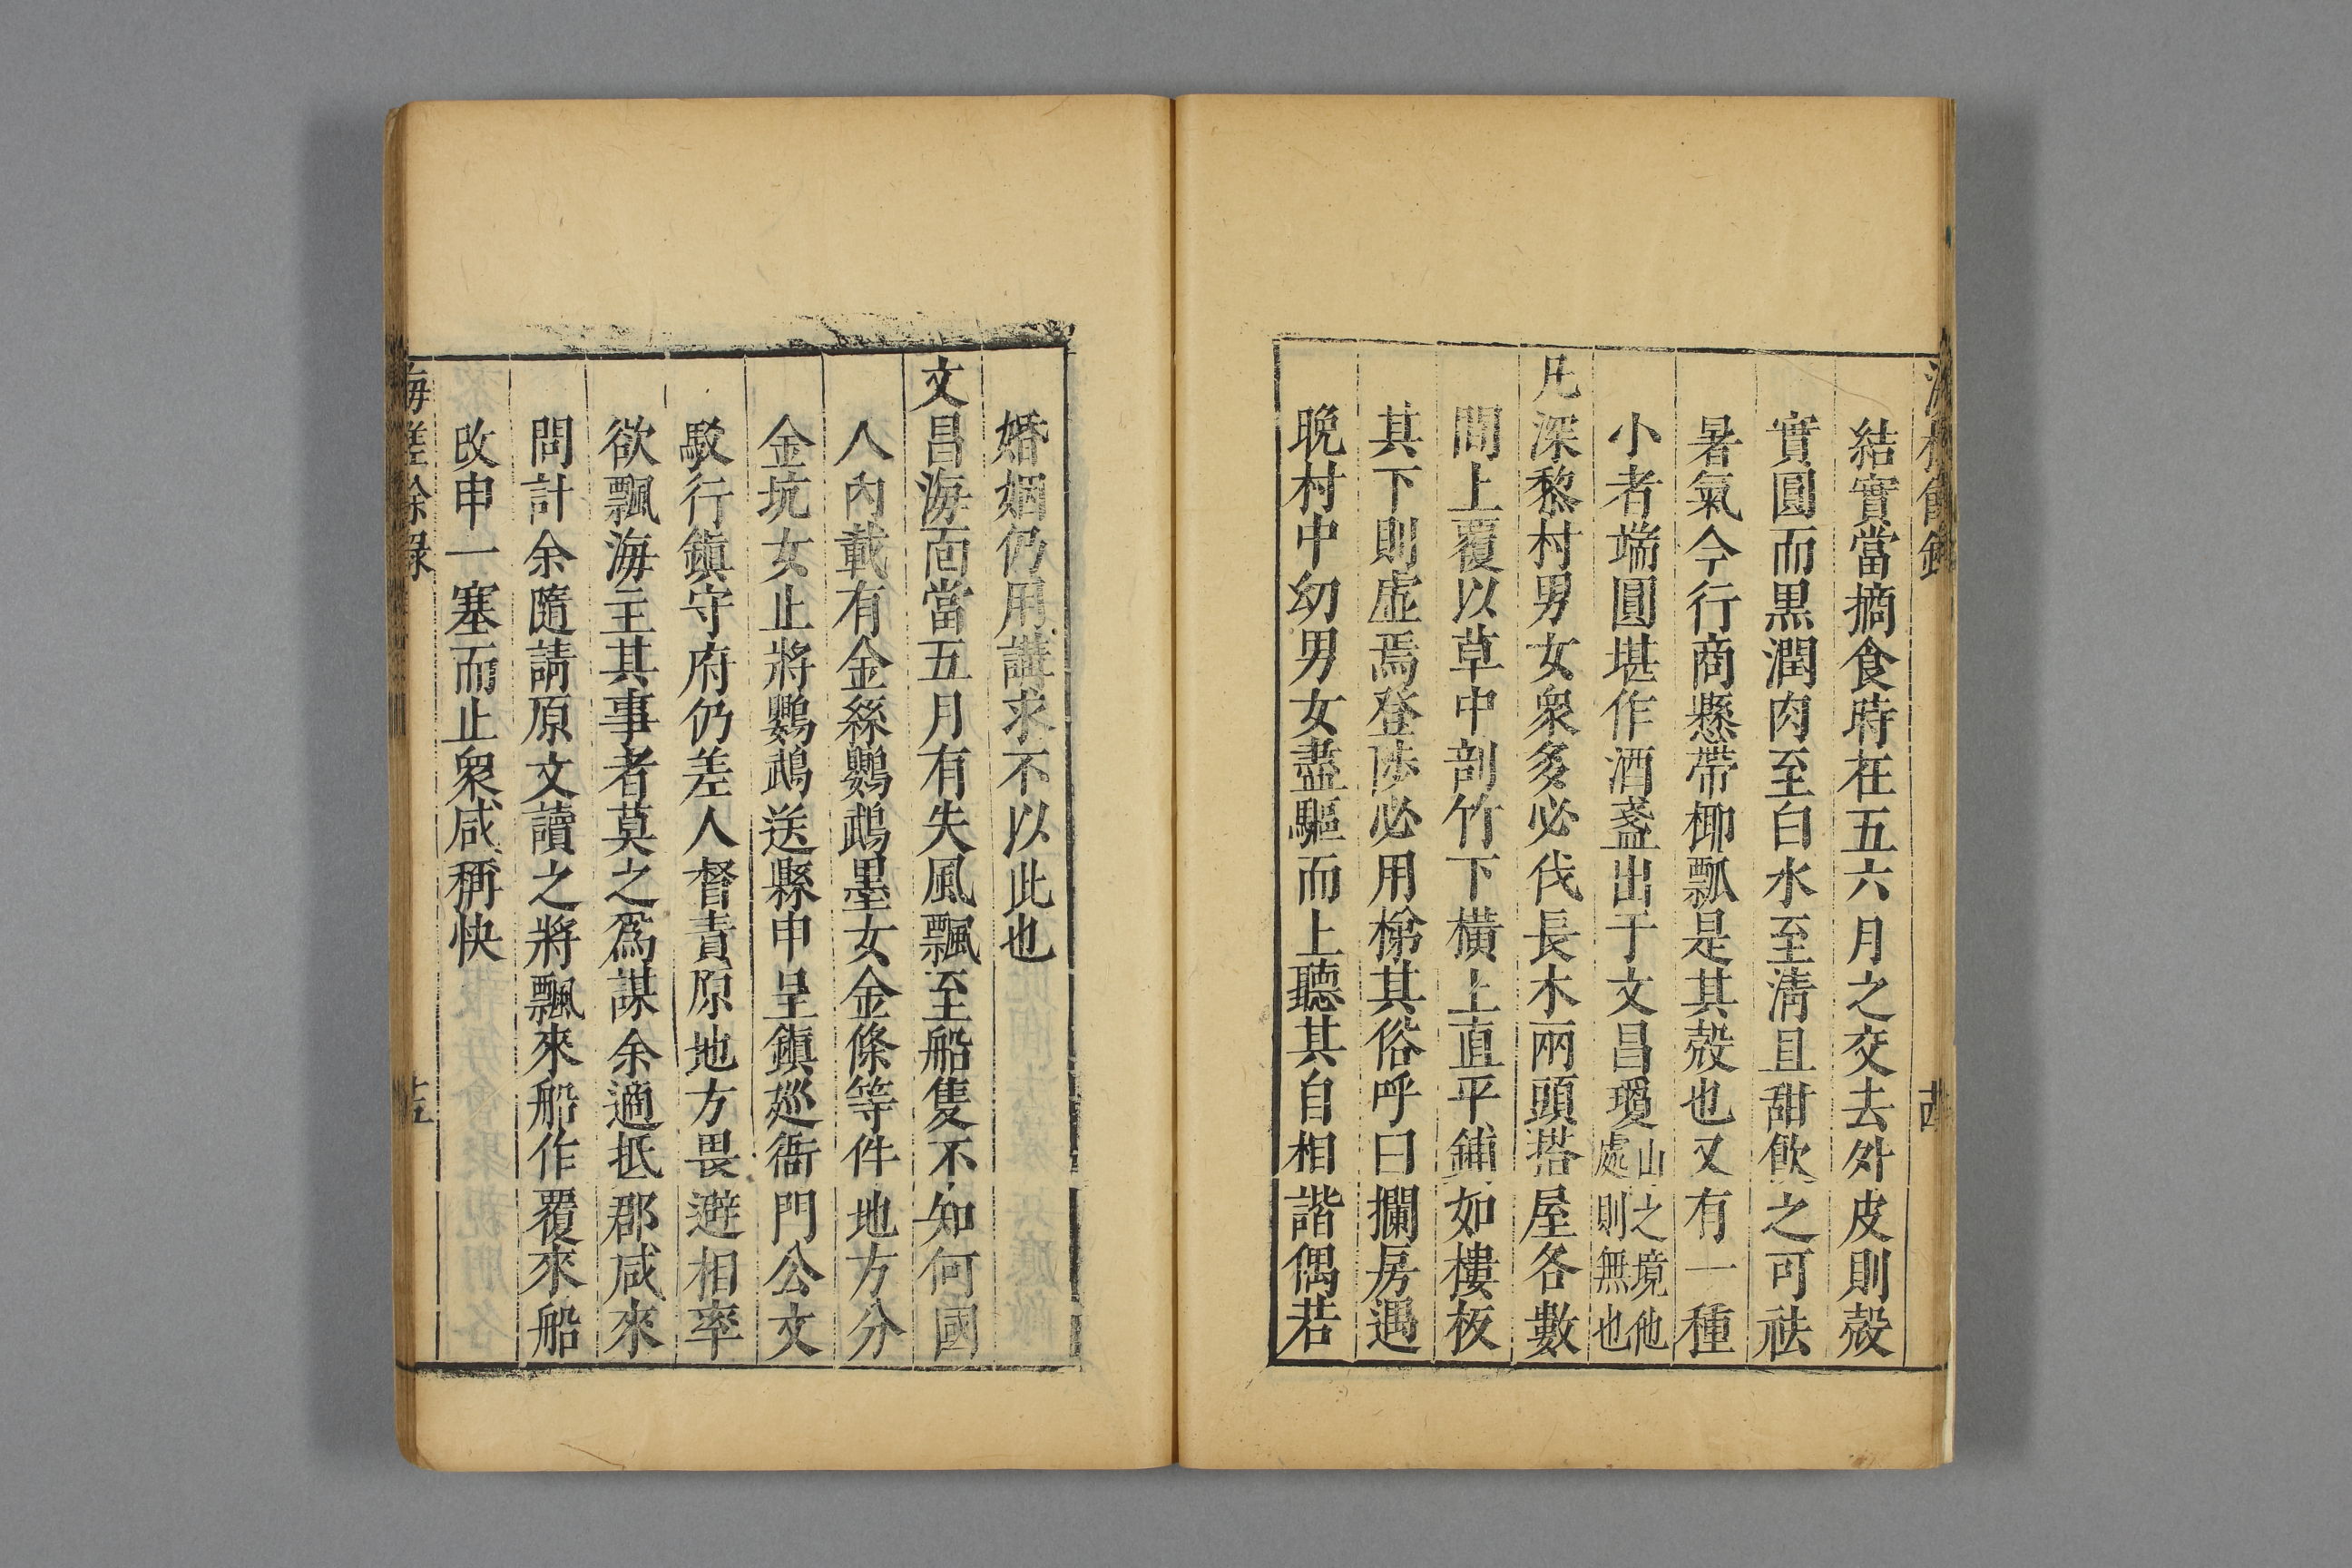 結實當摘食時在五六月之交去外皮則殼
實圓而黒潤肉至白水至淸且甜飲之可祛
暑氣今行商懸帶椰瓢是其殼也又有一種
小者端圓堪作酒盞出于文昌瓊山之境他處則無也
凡深黎村男女衆多必伐長木兩頭搭屋各數
間上覆以草中剖竹下橫上直平鋪如樓板
其下則虛焉登陟必用梯其俗呼曰攔房遇
晚村中幼男女盡驅而上聽其自相諧偶若
婚姻仍用講求不以此也
文昌海面當五月有失風飄至船隻不知何國
人內載有金絲鸚鵡墨女金條等件地方分
金坑女止將鸚鵡送縣申呈鎮廵衙門公文
駁行鎮守府仍差人督責原地方畏避相率
欲飄海主其事者莫之爲謀余適抵郡咸來
問計余隨請原文讀之將飄來船作覆來船
改申一塞而止衆咸稱快
海槎餘録
十五